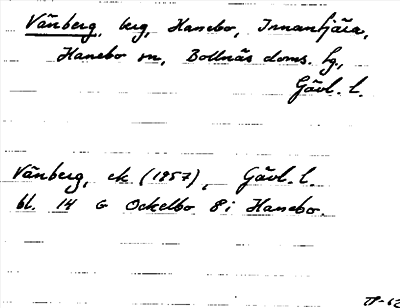 Vänberg, berg, Hanebo, Innanfjära,
Hanebo sn, Bollnäs doms. lg,
Gävl. l.
Vänberg, ek (1957), Gävl. l.
bl. 14 G Ockelbo 8i Hanebo.